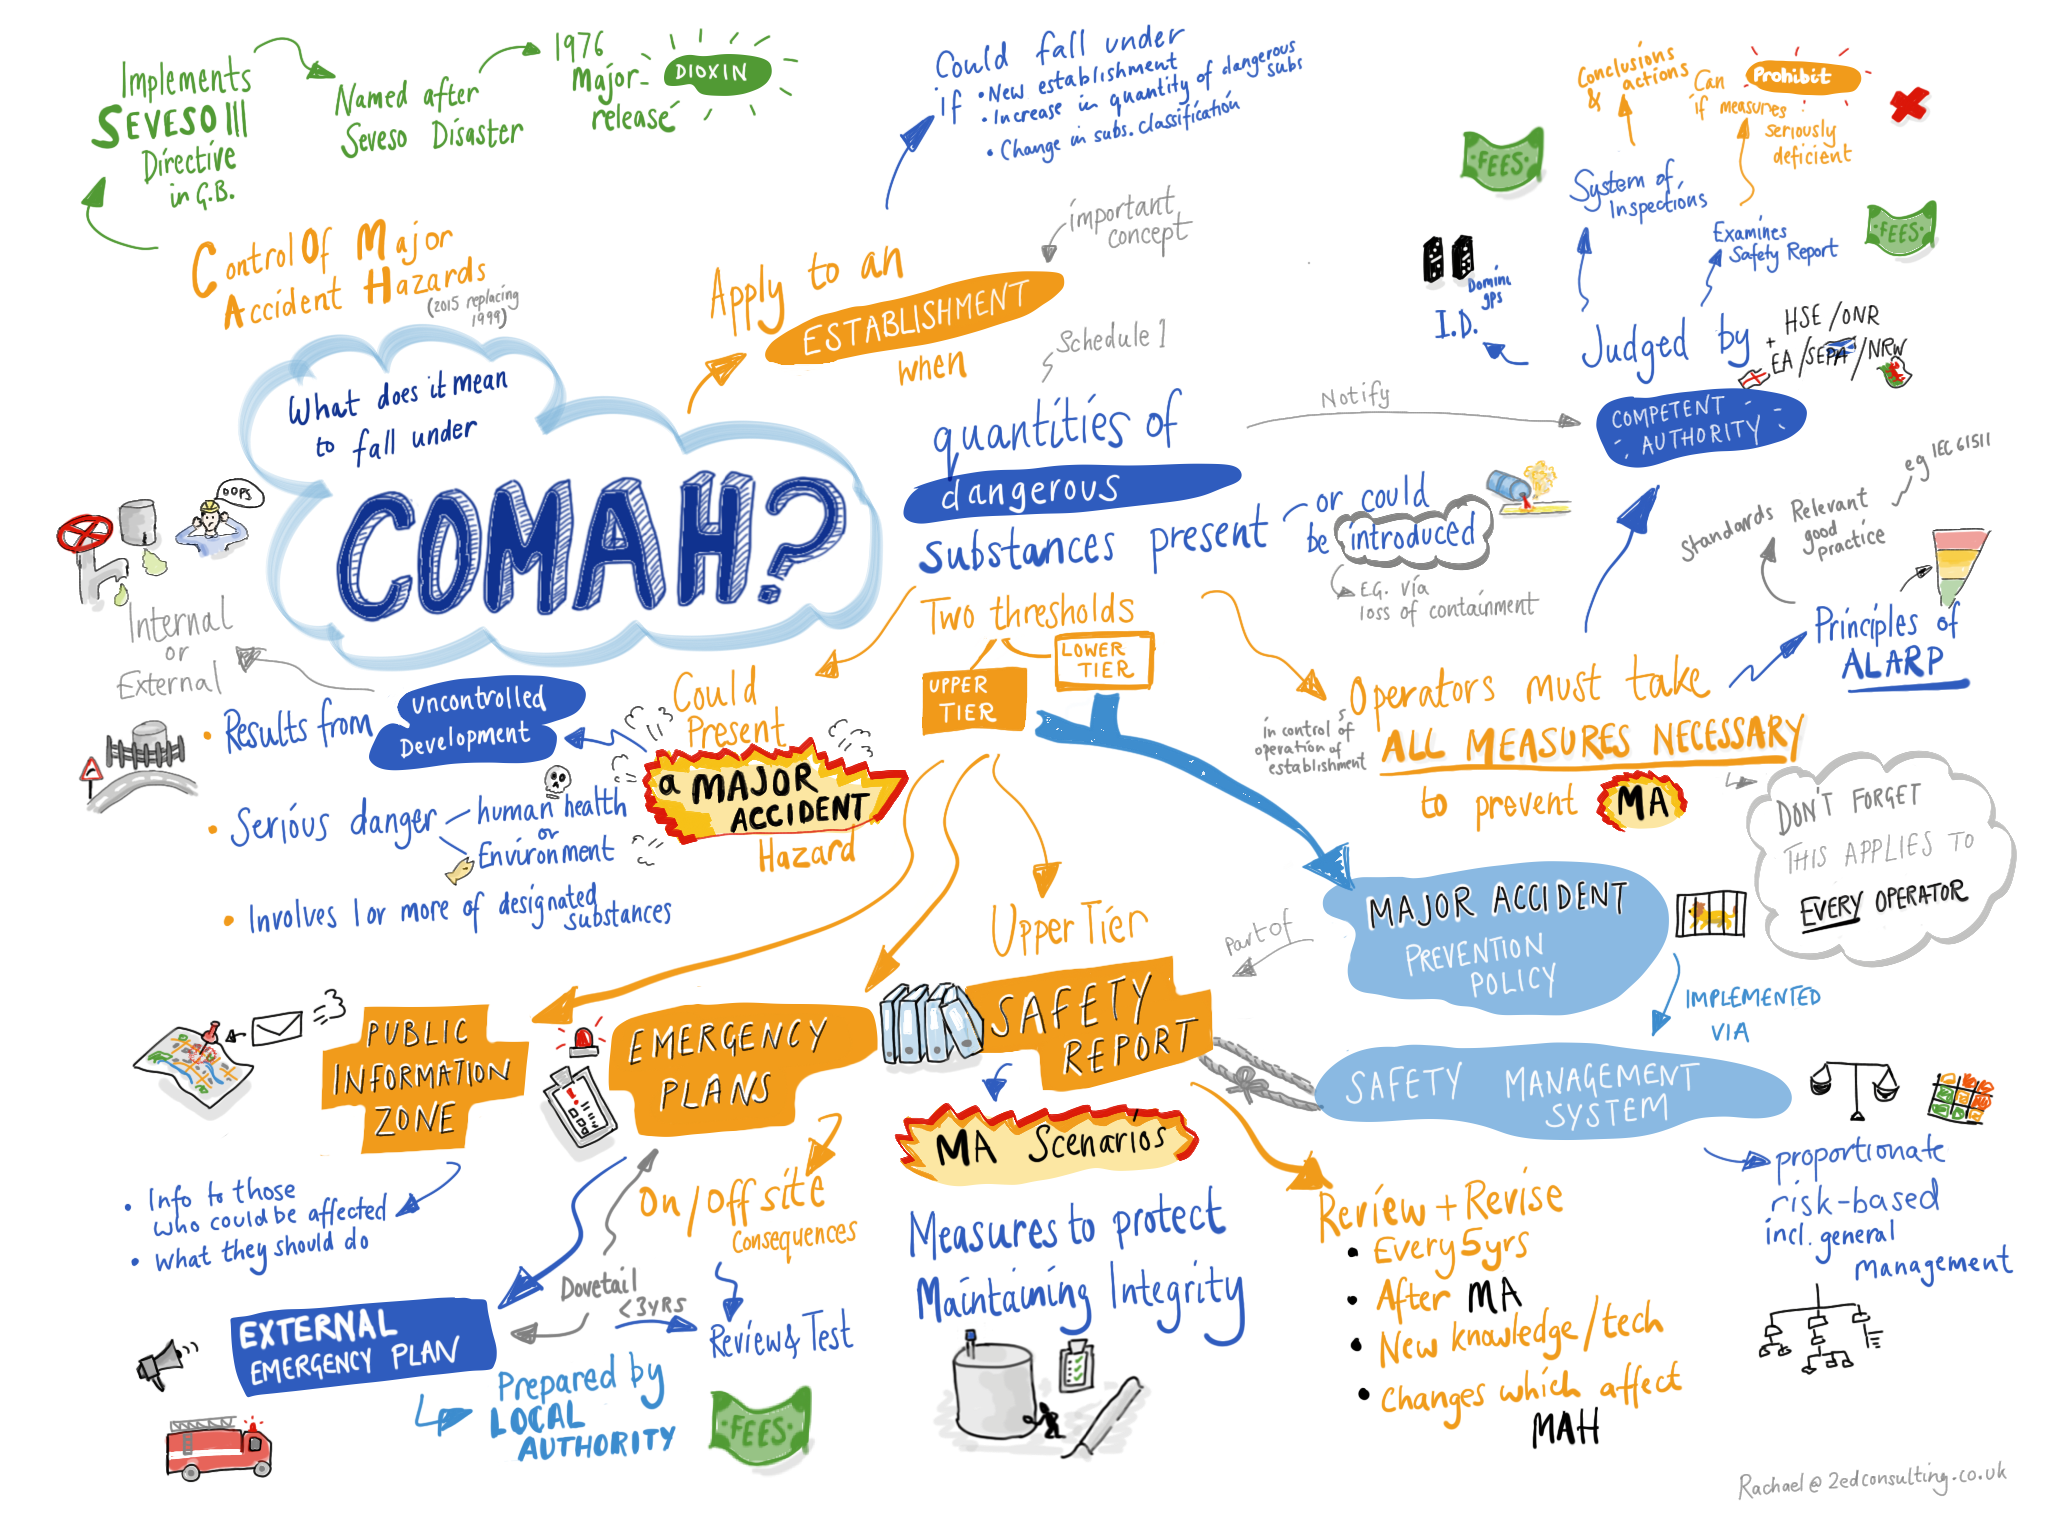 Implements
SEVESO III
Directive
in G.B.
Named after
Seveso Disaster
1976
Major
release
DIOXIN
Control Of Major
Accident Hazards
(2015 replacing
1999)
What does it mean
to fall under
COMAH?
Could fall under
if • New establishment
• Increase in quantity of dangerous
subs
• Change in subs. classification
important
concept
Apply to an
ESTABLISHMENT
when
Schedule 1
quantities of
dangerous
substances present
or could
be introduced
E.G. via
loss of containment
Notify
COMPETENT
AUTHORITY
Judged by
HSE / ONR
+
EA / SEPA / NRW
I.D.
Domino
gps
System of
Inspections
Conclusions
& actions
Examines
Safety Report
Can Prohibit
if measures
seriously
deficient
FEES
FEES
Two thresholds
UPPER
TIER
LOWER
TIER
Could
Present
a MAJOR
ACCIDENT
Hazard
OOPS
Internal
or
External
• Results from
Uncontrolled
Development
• Serious danger
human health
or
Environment
• Involves 1 or more of designated
substances
Operators must take
in control of
operation of
establishment
ALL MEASURES NECESSARY
to prevent MA
Principles of
ALARP
Standards
Relevant
good
practice
eg IEC 61511
DON'T FORGET
THIS APPLIES TO
EVERY OPERATOR
MAJOR ACCIDENT
PREVENTION
POLICY
Part of
IMPLEMENTED
VIA
SAFETY MANAGEMENT
SYSTEM
proportionate
risk-based
incl. general
management
Upper Tier
SAFETY
REPORT
MA Scenarios
Measures to protect
Maintaining Integrity
Review + Revise
• Every 5yrs
• After MA
• New knowledge/tech
• Changes which affect
MAH
EMERGENCY
PLANS
On/Off site
Consequences
Review & Test
<3YRS
Dovetail
PUBLIC
INFORMATION
ZONE
• Info to those
who could be affected
• What they should do
EXTERNAL
EMERGENCY PLAN
Prepared by
LOCAL
AUTHORITY
FEES
Rachael@2edconsulting.co.uk